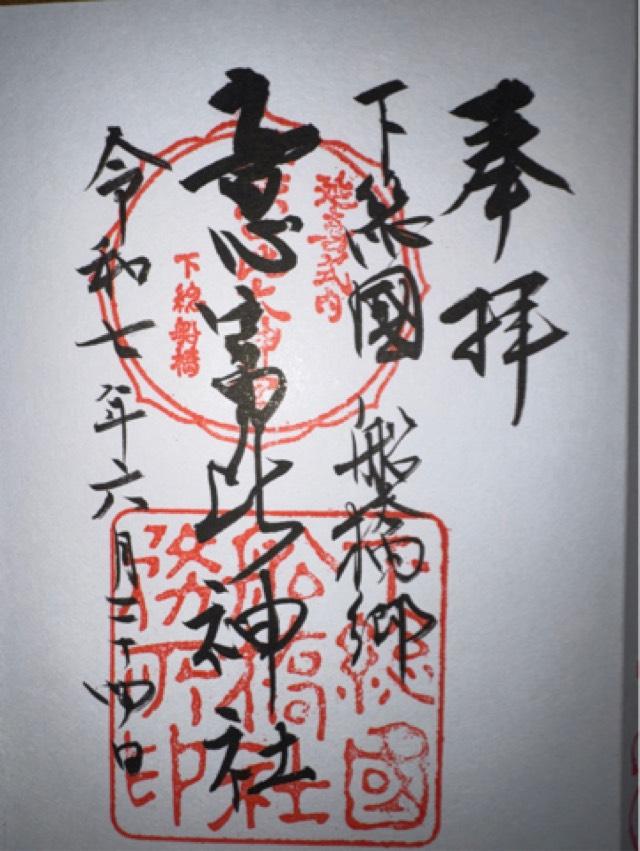 奉拝
下総國 船橋郷
意富比神社
令和七年六月二十四日
延喜式内
下総船橋
下総国
船橋社
務所印